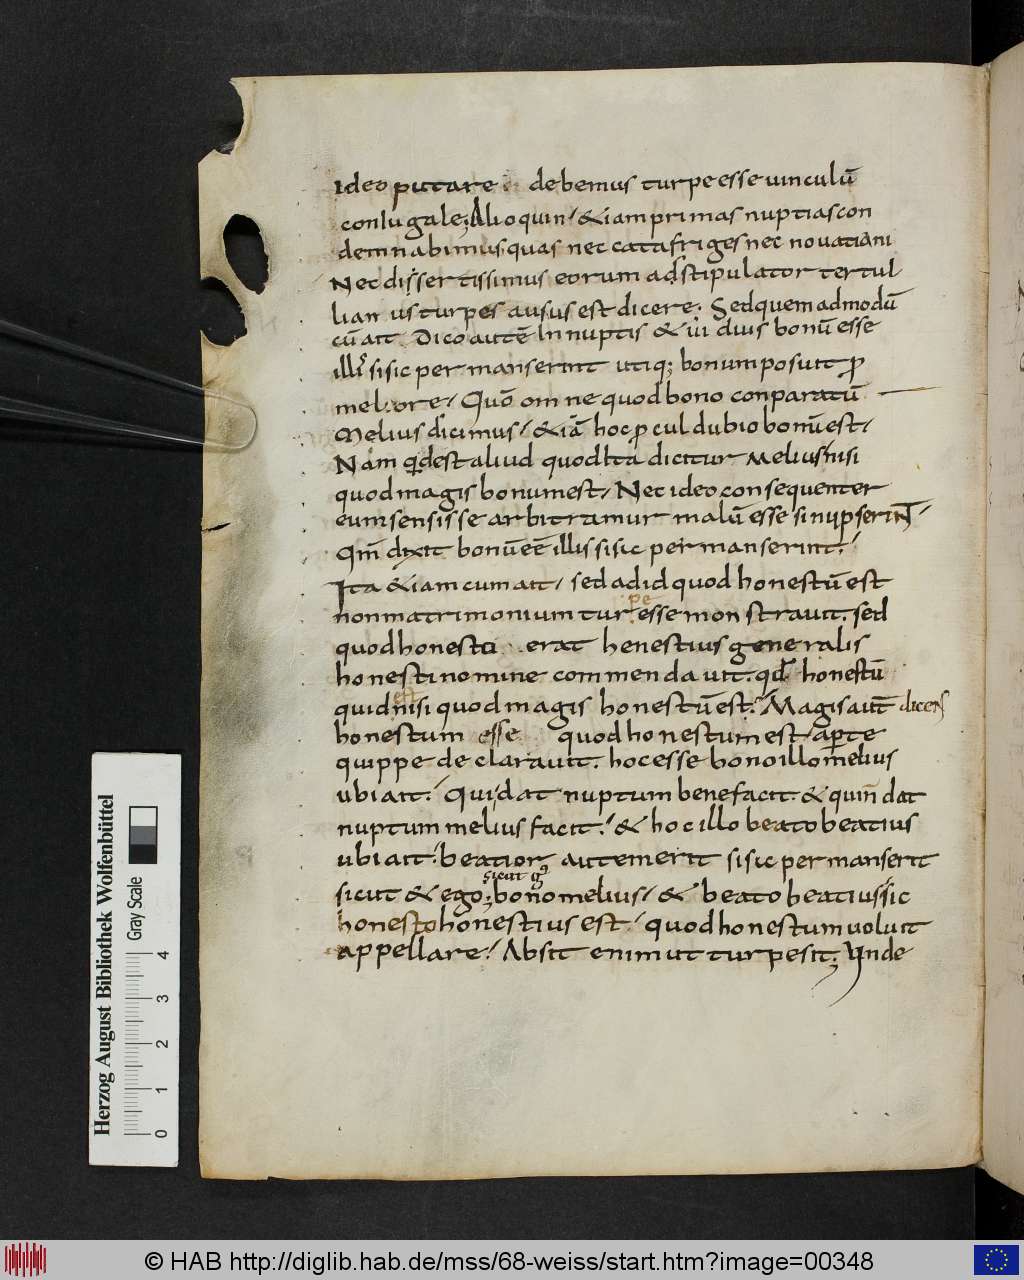 Ideo putare debemus turpe esse uinculū
coniugale; Alioquin / & iam primas nuptias con
demnabimus quas nec catafriges nec nouatiani
Nec dissertissimus eorum adstipulator tertul
lianus turpes ausus est dicere. Sed quem admodū
cū ait Dico autē Innuptis & uiduis bonū esse
illis si sic permanserint utiq; bonum posuit ꝓ
meliore / Quō omne quod bono conparatū
Melius dicimus / & iā hoc ꝓcul dubio bonū est /
Nam qͥd est aliud quod Ita dicitur Melius nisi
quod magis bonum est / Nec ideo consequenter
eum sensisse arbitramur malū esse si nupserint
Qm̄ dixit bonū eē illis si sic permanserint.
Ita & iam cum ait / sed ad id quod honestū est
pe
non matrimonium tur esse monstrauit. sed
quod honesto erat honestius generalis
honesti nomine commendauit. qd̄ honestū
est
quid nisi quod magis honestū est. Magis aut̄ dicens
honestum esse quod honestum est aperte
quippe declarauit. hoc esse bono illo melius
ubi ait. Qui dat nuptum bene facit. & qui n̄ dat
nuptum melius facit. / & hoc illo beato beatius
ubi ait. beatior autem erit si sic permanserit
sicut igͦ
sicut & ego; bono melius / & beato beatius sic
honesto honestius est / quod honestum uoluit
appellare / Absit enim ut turpe sit; Unde
Herzog August Bibliothek Wolfenbüttel
Gray Scale
0 1 2 3 4
© HAB http://diglib.hab.de/mss/68-weiss/start.htm?image=00348